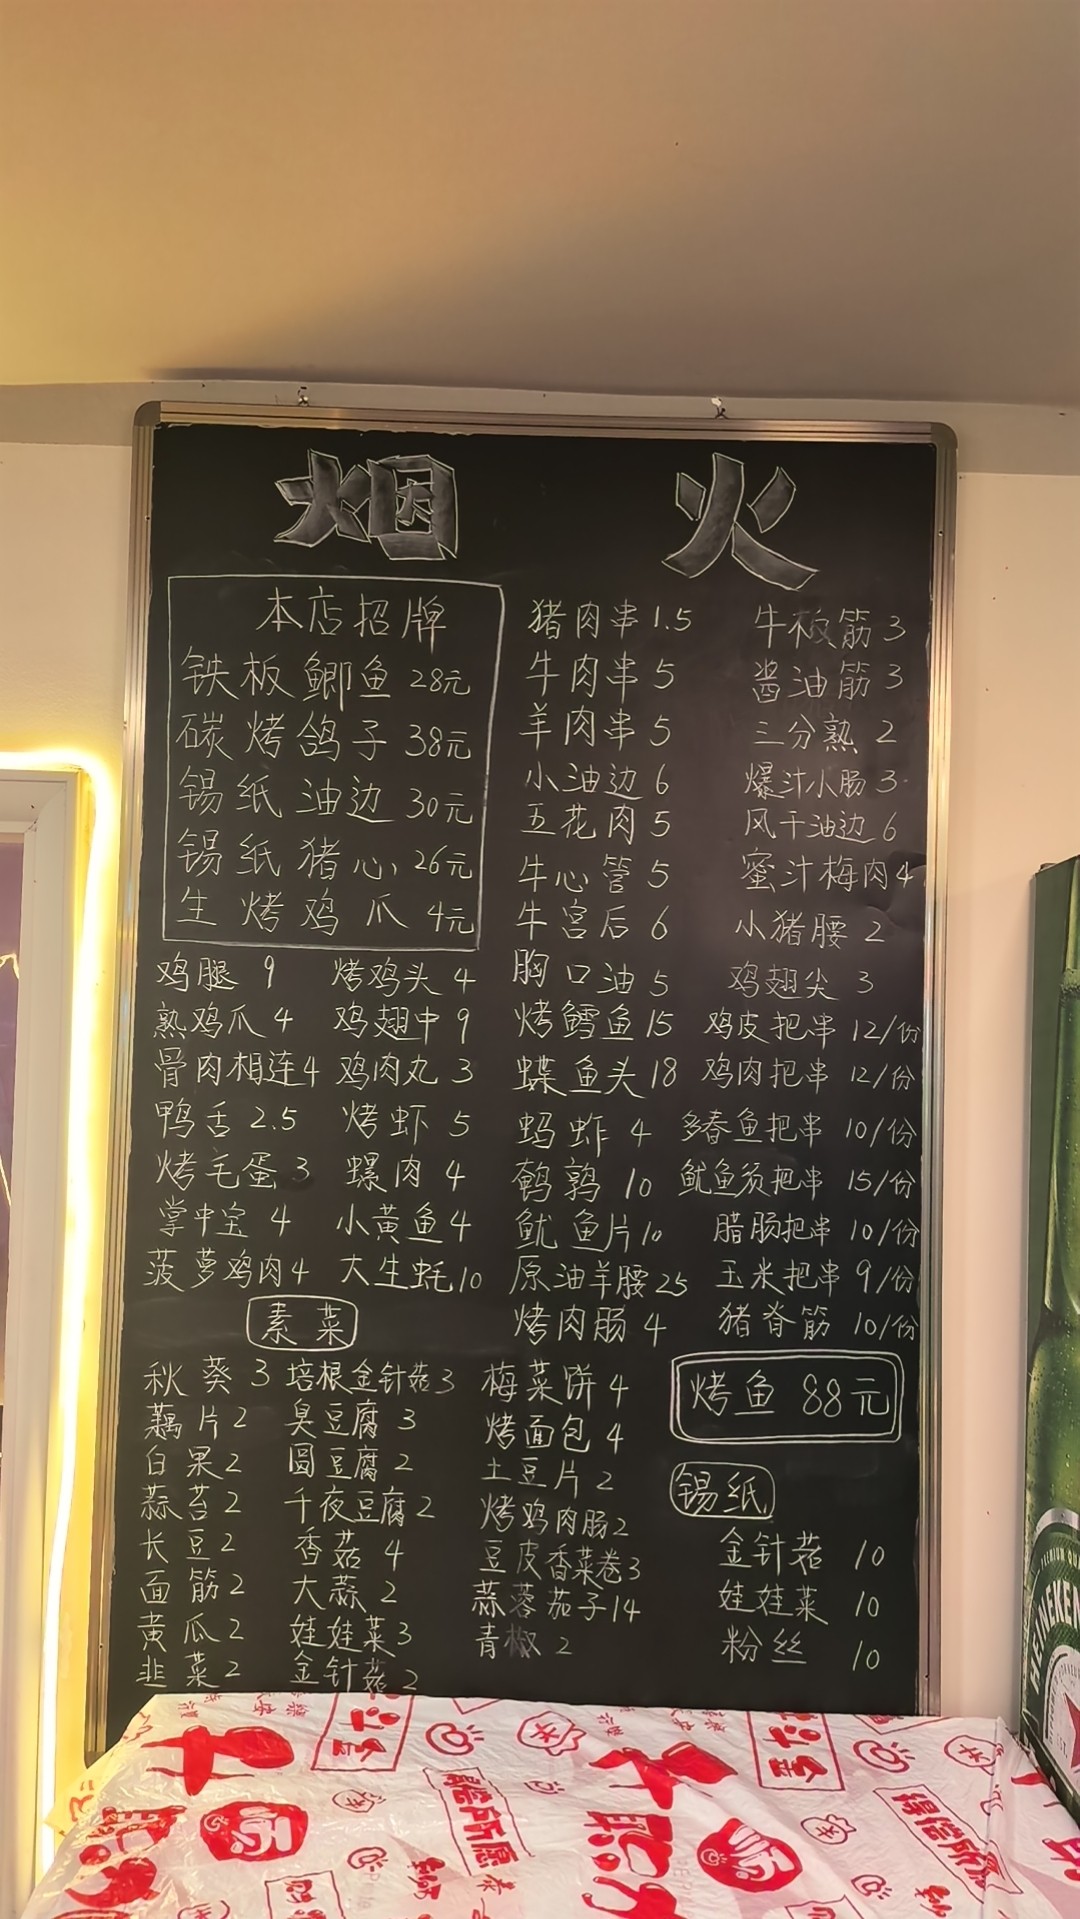 烟 火
本店招牌
铁板鲫鱼 28元
碳烤鸽子 38元
锡纸油边 30元
锡纸猪心 26元
生烤鸡爪 4元
鸡腿 9 烤鸡头 4
熟鸡爪 4 鸡翅中 9
骨肉相连 4 鸡肉丸 3
鸭舌 2.5 烤虾 5
烤毛蛋 3 螺肉 4
掌中宝 4 小黄鱼 4
菠萝鸡肉 4 大生蚝 10
猪肉串 1.5 牛板筋 3
牛肉串 5 酱油筋 3
羊肉串 5 三分熟 2
小油边 6 爆汁小肠 3
五花肉 5 风干油边 6
牛心管 5 蜜汁梅肉 4
牛宫后 6 小猪腰 2
胸口油 5 鸡翅尖 3
烤鳕鱼 15 鸡皮把串 12/份
蝶鱼头 18 鸡肉把串 12/份
蚂蚱 4 多春鱼把串 10/份
鹌鹑 10 鱿鱼须把串 15/份
鱿鱼片 10 腊肠把串 10/份
原油羊腰 25 玉米把串 9/份
烤肉肠 4 猪脊筋 10/份
素菜
秋葵 3 培根金针菇 3
藕片 2 臭豆腐 3
白果 2 圆豆腐 2
蒜苔 2 千夜豆腐 2
长豆 2 香菇 4
面筋 2 大蒜 2
黄瓜 2 娃娃菜 3
韭菜 2 金针菇 2
梅菜饼 4
烤面包 4
土豆片 2
烤鸡肉肠 2
豆皮香菜卷 3
蒜蓉茄子 14
青椒 2
烤鱼 88元
锡纸
金针菇 10
娃娃菜 10
粉丝 10
HEINEKEN